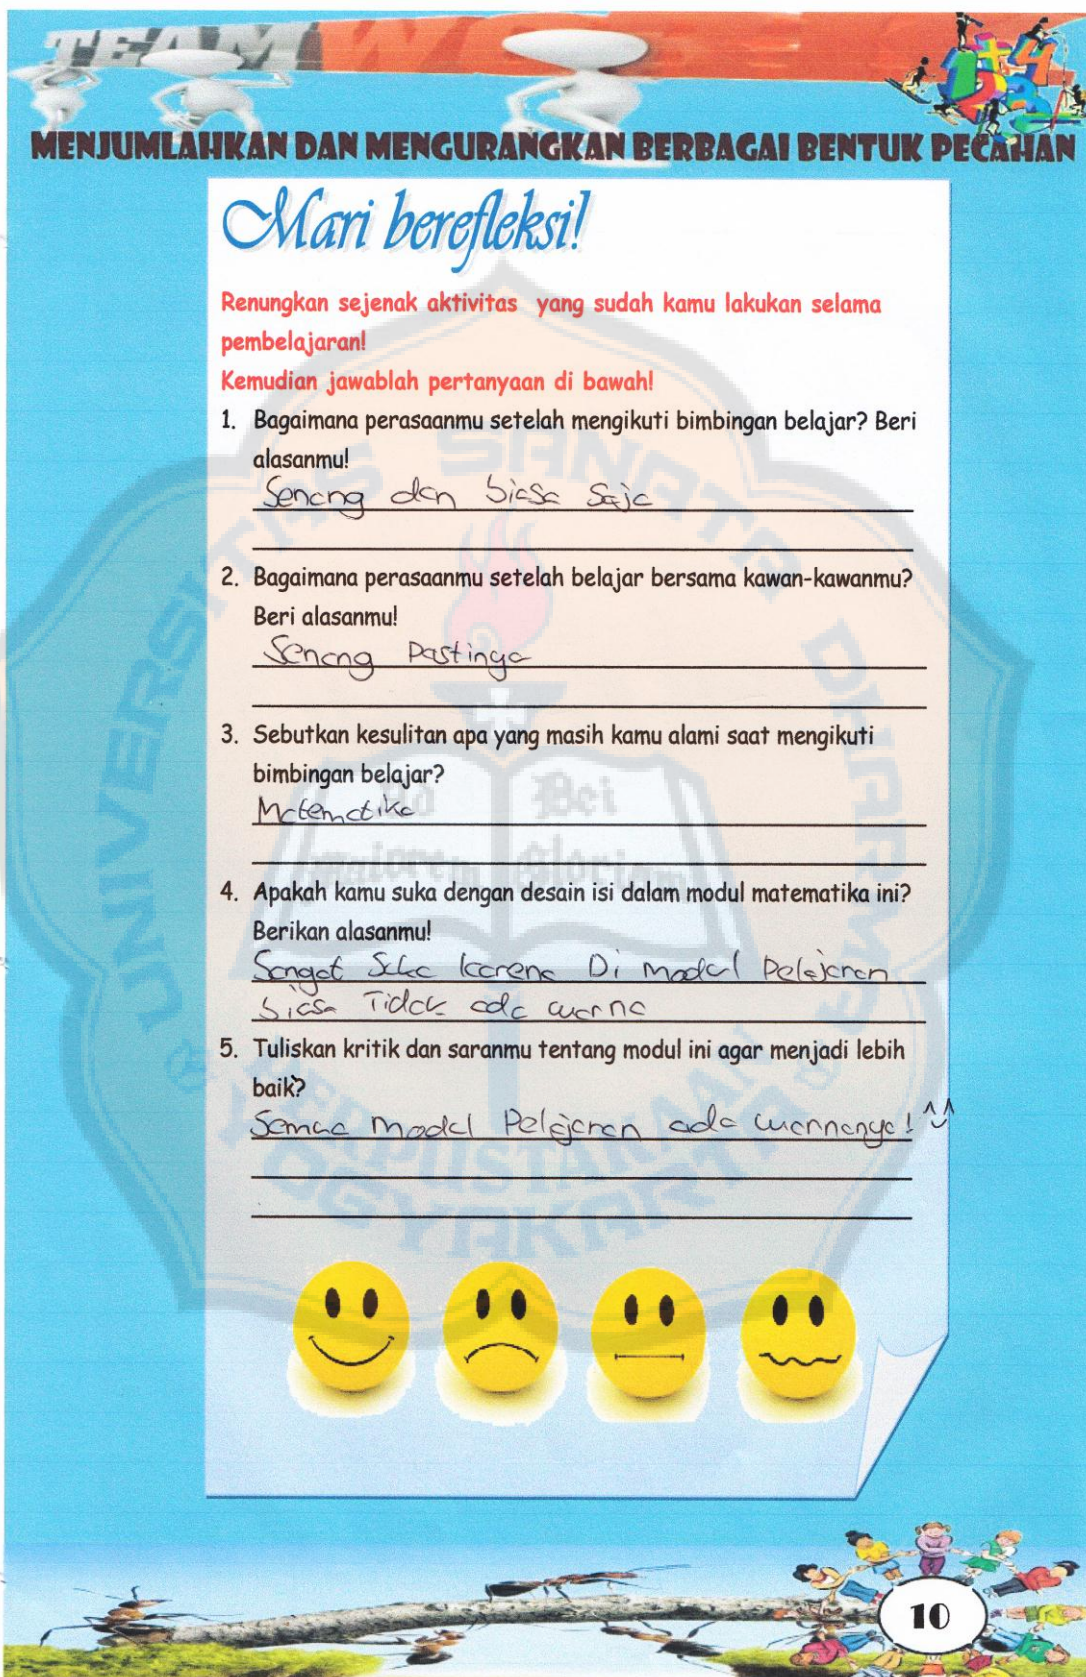 TEAM WORK
MENJUMLAHKAN DAN MENGURANGKAN BERBAGAI BENTUK PECAHAN
Mari berefleksi!
Renungkan sejenak aktivitas yang sudah kamu lakukan selama
pembelajaran!
Kemudian jawablah pertanyaan di bawah!
1. Bagaimana perasaanmu setelah mengikuti bimbingan belajar? Beri
alasanmu!
Senang dan biasa saja
2. Bagaimana perasaanmu setelah belajar bersama kawan-kawanmu?
Beri alasanmu!
Senang Pastinya
3. Sebutkan kesulitan apa yang masih kamu alami saat mengikuti
bimbingan belajar?
Matematika
4. Apakah kamu suka dengan desain isi dalam modul matematika ini?
Berikan alasanmu!
Sangat Suka karena Di modul Pelajaran
biasa Tidak ada warna
5. Tuliskan kritik dan saranmu tentang modul ini agar menjadi lebih
baik?
Semua modul Pelajaran ada warnanya! ^^
UNIVERSITAS SANATA DHARMA
Ad Maiorem Dei Gloriam
PERPUSTAKAAN
YOGYAKARTA
10